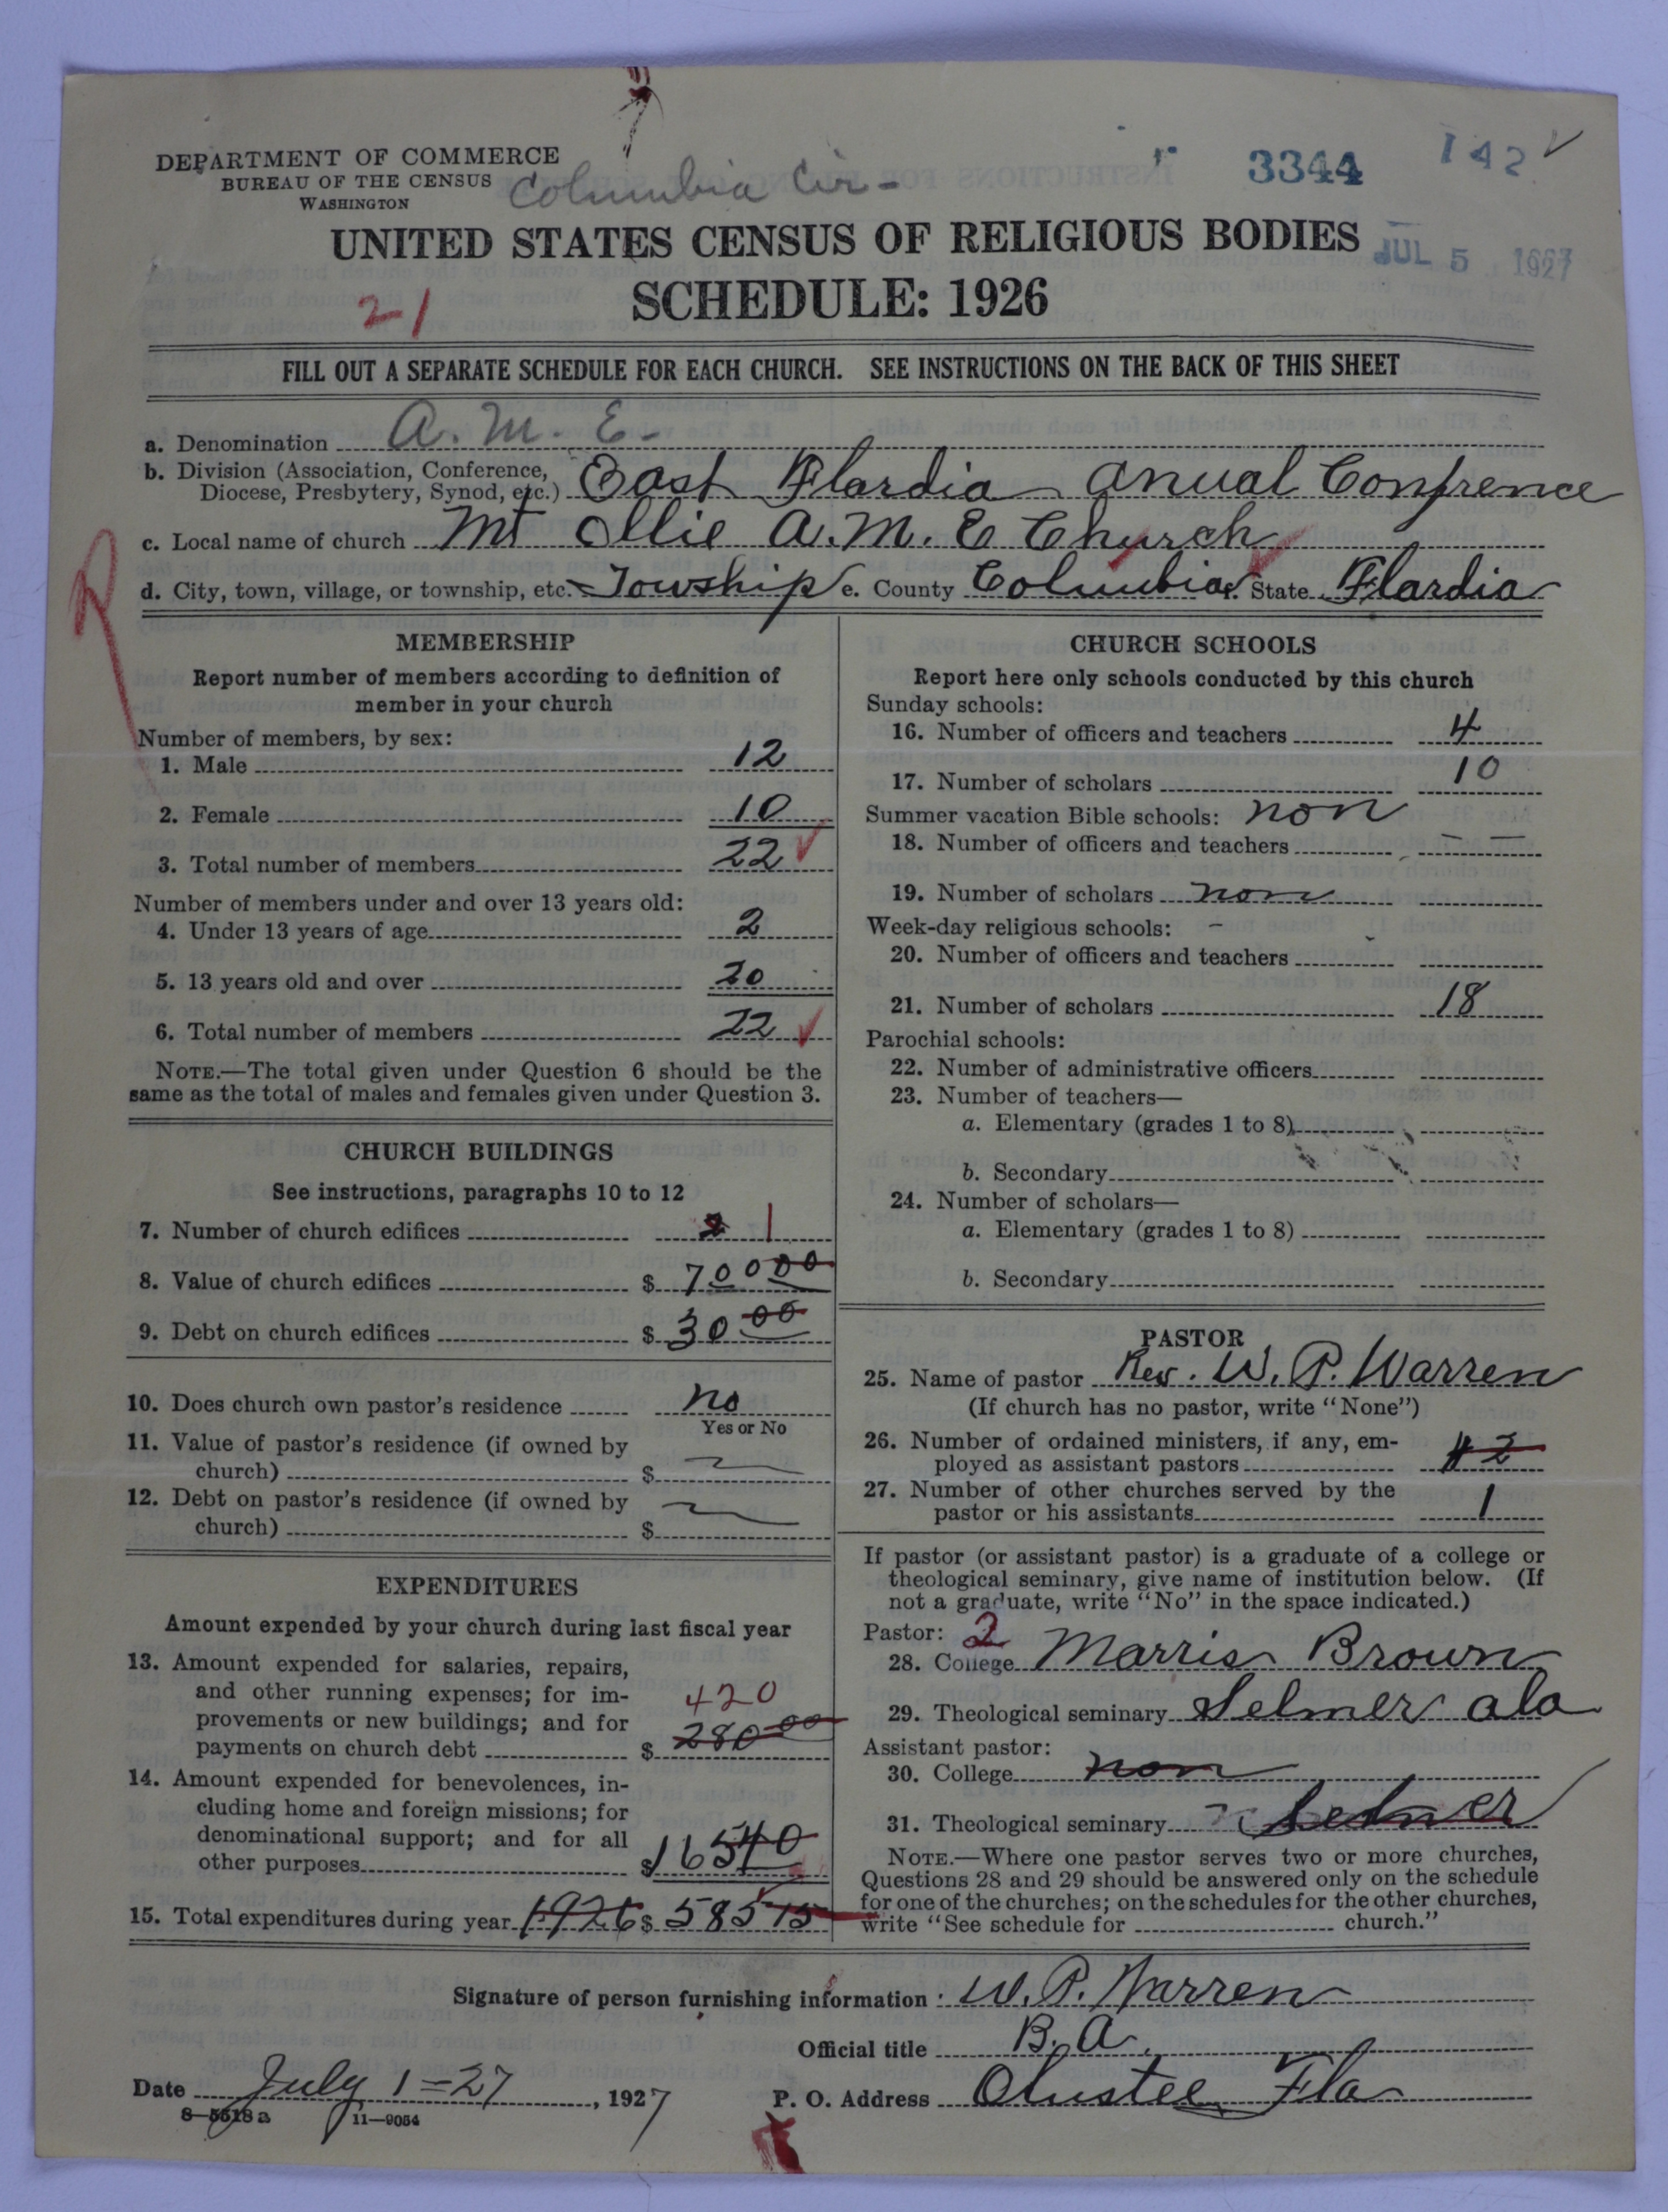 DEPARTMENT OF COMMERCE
BUREAU OF THE CENSUS
WASHINGTON
Columbia Cir-
3344
142
UNITED STATES CENSUS OF RELIGIOUS BODIES
JUL 5 1927
SCHEDULE: 1926
21
FILL OUT A SEPARATE SCHEDULE FOR EACH CHURCH. SEE INSTRUCTIONS ON THE BACK OF THIS SHEET
a. Denomination A. M. E-
b. Division (Association, Conference, Diocese, Presbytery, Synod, etc.) East Flardia Anual Confrence
c. Local name of church Mt Ollie A. M. E Church
d. City, town, village, or township, etc. Towship e. County Columbia f. State Flardia
R
MEMBERSHIP
Report number of members according to definition of
member in your church
Number of members, by sex:
1. Male 12
2. Female 10
3. Total number of members 22
Number of members under and over 13 years old:
4. Under 13 years of age 2
5. 13 years old and over 20
6. Total number of members 22
NOTE.—The total given under Question 6 should be the
same as the total of males and females given under Question 3.
CHURCH BUILDINGS
See instructions, paragraphs 10 to 12
7. Number of church edifices 1
8. Value of church edifices $ 70000
9. Debt on church edifices $ 30 00
10. Does church own pastor's residence No
Yes or No
11. Value of pastor's residence (if owned by
church) $
12. Debt on pastor's residence (if owned by
church) $
EXPENDITURES
Amount expended by your church during last fiscal year
13. Amount expended for salaries, repairs,
and other running expenses; for im-
420
provements or new buildings; and for
payments on church debt $ 280 00
14. Amount expended for benevolences, in-
cluding home and foreign missions; for
denominational support; and for all
other purposes $ 16540
15. Total expenditures during year 1926 $ 585 15
CHURCH SCHOOLS
Report here only schools conducted by this church
Sunday schools:
16. Number of officers and teachers 4
17. Number of scholars 10
Summer vacation Bible schools: non
18. Number of officers and teachers — —
19. Number of scholars non
Week-day religious schools: -
20. Number of officers and teachers
21. Number of scholars 18
Parochial schools:
22. Number of administrative officers
23. Number of teachers—
a. Elementary (grades 1 to 8)
b. Secondary
24. Number of scholars—
a. Elementary (grades 1 to 8)
b. Secondary
PASTOR
25. Name of pastor Rev. W. P. Warren
(If church has no pastor, write "None")
26. Number of ordained ministers, if any, em-
ployed as assistant pastors 2
27. Number of other churches served by the
pastor or his assistants 1
If pastor (or assistant pastor) is a graduate of a college or
theological seminary, give name of institution below. (If
not a graduate, write "No" in the space indicated.)
Pastor: 2
28. College Marris Brown
29. Theological seminary Selmer ala
Assistant pastor:
30. College non
31. Theological seminary Selmer
NOTE.—Where one pastor serves two or more churches,
Questions 28 and 29 should be answered only on the schedule
for one of the churches; on the schedules for the other churches,
write "See schedule for church."
Signature of person furnishing information W. P. Warren
Official title B. A.
Date July 1=27, 1927
P. O. Address Olustee Fla
8—5518 a 11—9054